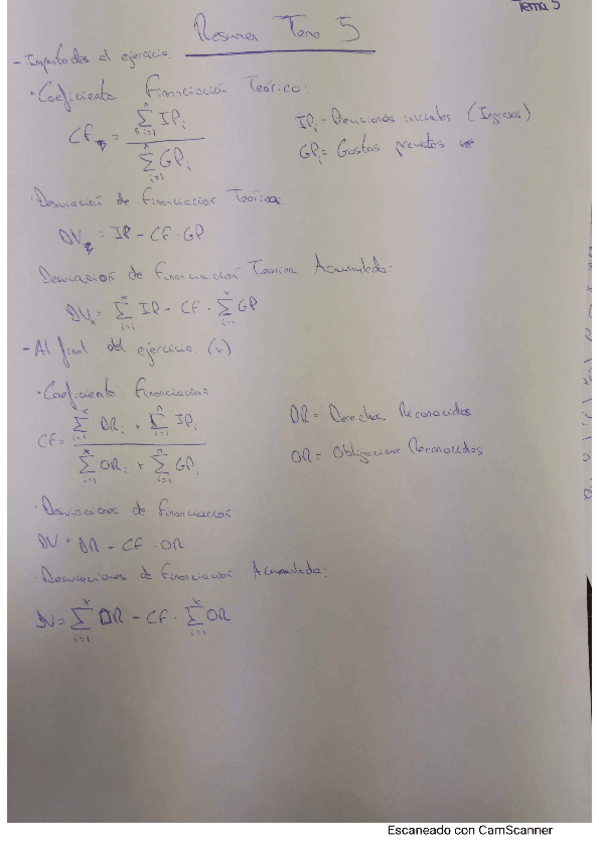 Tema 5
Resumen Tema 5
- Imputados al ejercicio.
· Coeficiente Financiación Teórico:
CF = ∑ᵢ₌₁ⁿ IPᵢ / ∑ᵢ₌₁ⁿ GPᵢ
IPᵢ = Previsiones iniciales (Ingresos)
GPᵢ = Gastos previstos
· Desviación de Financiación Teórica:
DV = IP - CF · GP
· Desviación de Financiación Teórica Acumulada:
DVₓ = ∑ᵢ₌₁ˣ IP - CF · ∑ᵢ₌₁ˣ GP
- Al final del ejercicio. (x)
· Coeficiente Financiación
CF = ∑ᵢ₌₁ˣ DRᵢ + ∑ᵢ₌₁ⁿ IPᵢ / ∑ᵢ₌₁ˣ ORᵢ + ∑ᵢ₌₁ⁿ GPᵢ
DR = Derechos Reconocidos
OR = Obligaciones Reconocidas
· Desviaciones de Financiación
DV = DR - CF · OR
· Desviaciones de Financiación Acumulada:
DV = ∑ᵢ₌₁ˣ DR - CF · ∑ᵢ₌₁ˣ OR
Escaneado con CamScanner